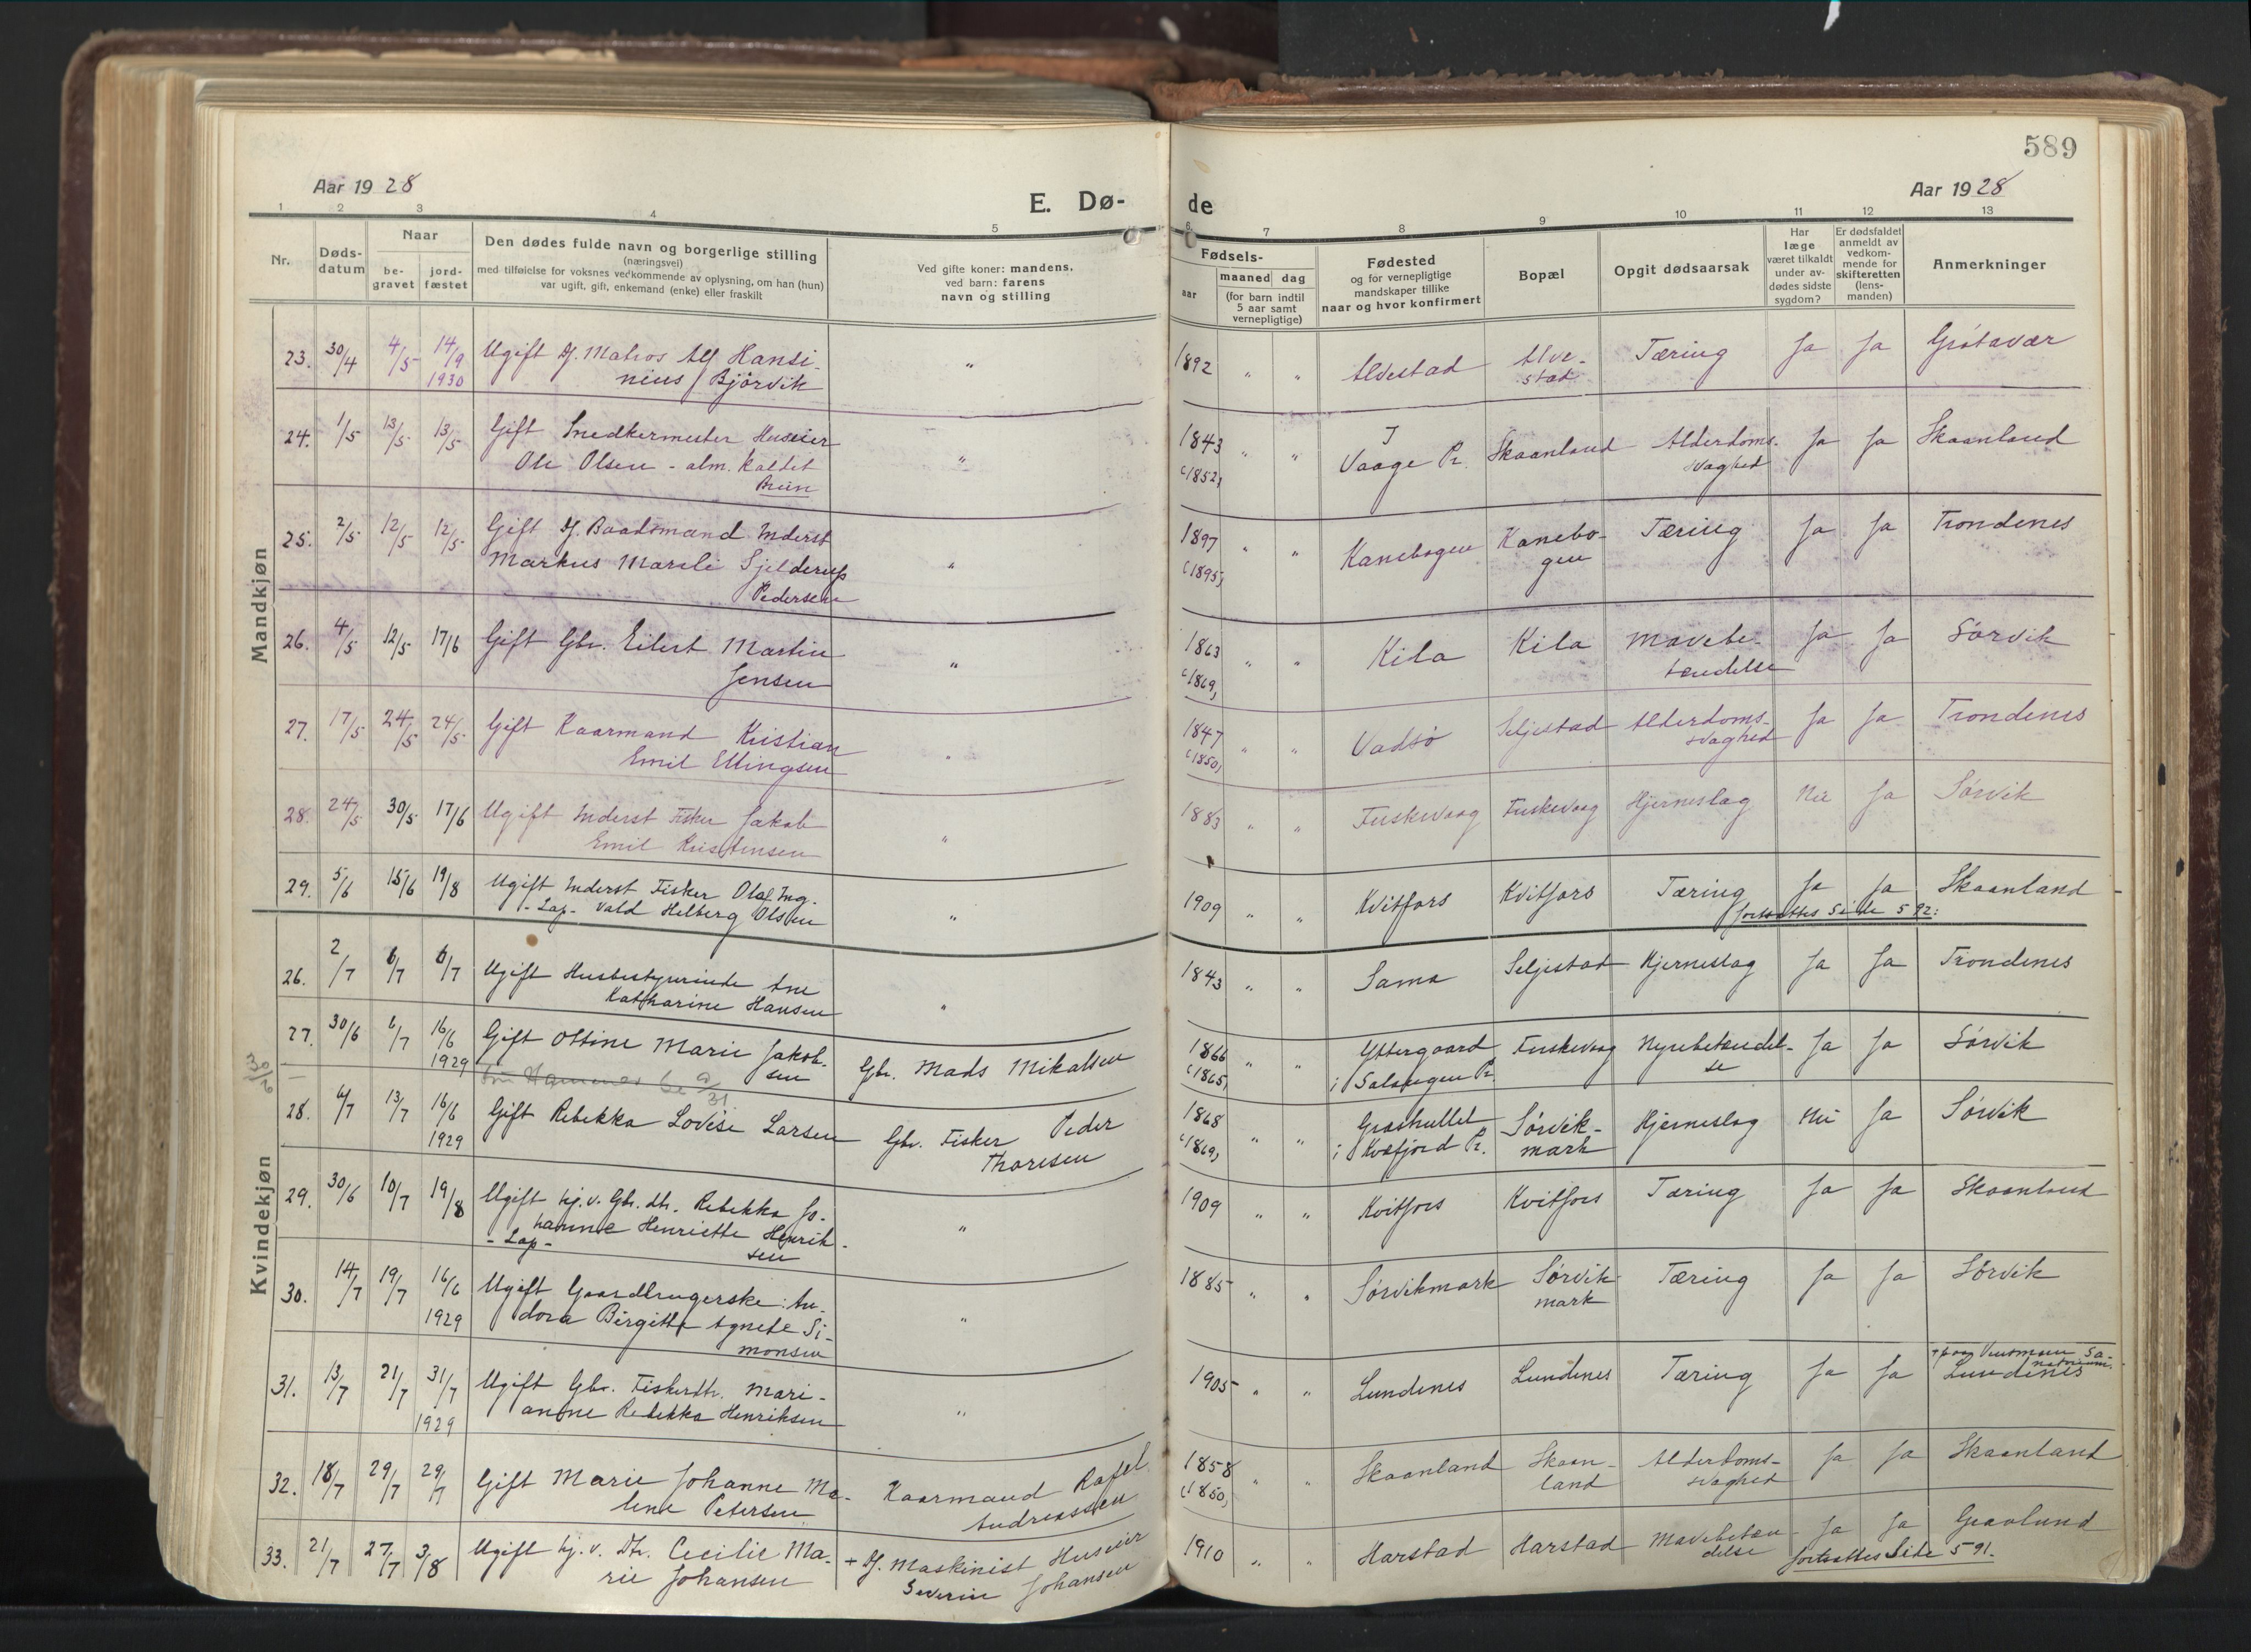 589
Aar 1928
E. Dø-
de
Aar 1928
1 2 3 4 5 6 7 8 9 10 11 12 13
Nr.
Døds-
datum
Naar
be-
gravet
jord-
fæstet
Den dødes fulde navn og borgerlige stilling
(næringsvei)
med tilføielse for voksnes vedkommende av oplysning, om han (hun)
var ugift, gift, enkemand (enke) eller fraskilt
Ved gifte koner: mandens,
ved barn: farens
navn og stilling
Fødsels-
aar
maaned dag
(for barn indtil
5 aar samt
vernepligtige)
Fødested
og for vernepligtige
mandskaper tillike
naar og hvor konfirmert
Bopæl
Opgit dødsaarsak
Har
læge
været tilkaldt
under av-
dødes sidste
sygdom?
Er dødsfaldet
anmeldt av
vedkom-
mende for
skifteretten
(lens-
manden)
Anmerkninger
Mandkjøn
23. 30/4 4/5 14/9 Ugift Dj. Matros Alf Hansi- " 1892 " " Alvestad Alve- Tæring Ja Ja Grøtavær
1930 nius Bjørvik stad
24. 1/5 13/5 13/5 Gift Snedkermester Huseier " 1843 " " I Skaanland Alderdoms- Ja Ja Skaanland
Ole Olsen - alm. kaldet (1852) Vaage Pr. svaghed
Brun
25. 2/5 12/5 12/5 Gift Dj. Baadsmand Inderst " 1897 " " Kanebogen Kanebo- Tæring Ja Ja Trondenes
Markus Mareli Sjelderup (1895) gen
Pedersen
26. 4/5 12/5 17/6 Gift Gbr. Eilert Martin " 1863 " " Kila Kila Mavebe- Ja Ja Sørvik
Jensen (1869) tændelse
27. 17/5 24/5 24/5 Gift Kaarmand Kristian " 1847 " " Vadsø Seljestad Alderdoms- Ja Ja Trondenes
Emil Ellingsen (1850) svaghed
28. 24/5 30/5 17/6 Ugift Inderst Fisker Jakob " 1883 " " Fuskevaag Fuskevaag Hjerneslag Nei Ja Sørvik
Emil Kristensen
29. 5/6 15/6 19/8 Ugift Inderst Fisker Olaf Ing- " 1909 " " Kvitfors Kvitfors Tæring Ja Ja Skaanland
- Lap - vald Helberg Olsen fortsættes Side 592:
Kvindekjøn
26. 2/7 6/7 6/7 Ugift Husbestyrerinde Ane " 1843 " " Sama Seljestad Hjerneslag Ja Ja Trondenes
Katharine Hansen
27. 30/6 6/7 16/6 Gift Ottine Marie Jakob- Gbr. Mads Mikalsen 1866 " " Yttergaard Fuskevaag Nyrebetændel- Ja Ja Sørvik
1929 sen (1865) i Salangen Pr. se
28. 6/7 13/7 16/6 Gift Rebekka Lovise Larsen Gbr. Fisker Peder 1868 " " Grashullet Sørvik- Hjerneslag Nei Ja Sørvik
1929 Thoresen (1869) i Kvæfjord Pr. mark
29. 30/6 10/7 19/8 Ugift hj. v. Gbr. dtr. Rebekka Jo- " 1909 " " Kvitfors Kvitfors Tæring Ja Ja Skaanland
hanne Henriette Henrik-
- Lap - sen
30. 14/7 19/7 16/6 Ugift Gaardbrugerske: An- " 1885 " " Sørvikmark Sørvik- Tæring Ja Ja Sørvik
1929 dora Birgitte Agnete Si- mark
monsen
31. 13/7 21/7 31/7 Ugift Gbr. Fiskerdtr. Mari- " 1905 " " Lundenes Lundenes Tæring Ja Ja Lundenes
1929 anne Rebekka Henriksen
32. 18/7 29/7 29/7 Gift Marie Johanne Ma- Kaarmand Rafel 1858 " " Skaanland Skaan- Alderdoms- Ja Ja Skaanland
lene Petersen Andreassen (1850) land svaghed
33. 21/7 27/7 3/8 Ugift hj. v. Dtr. Cecilie Ma- + Dj. Maskinist Huseier 1910 " " Harstad Harstad Mavebetæn- Ja Ja Graalund
rie Johansen Severin Johansen delse fortsættes Side 591.